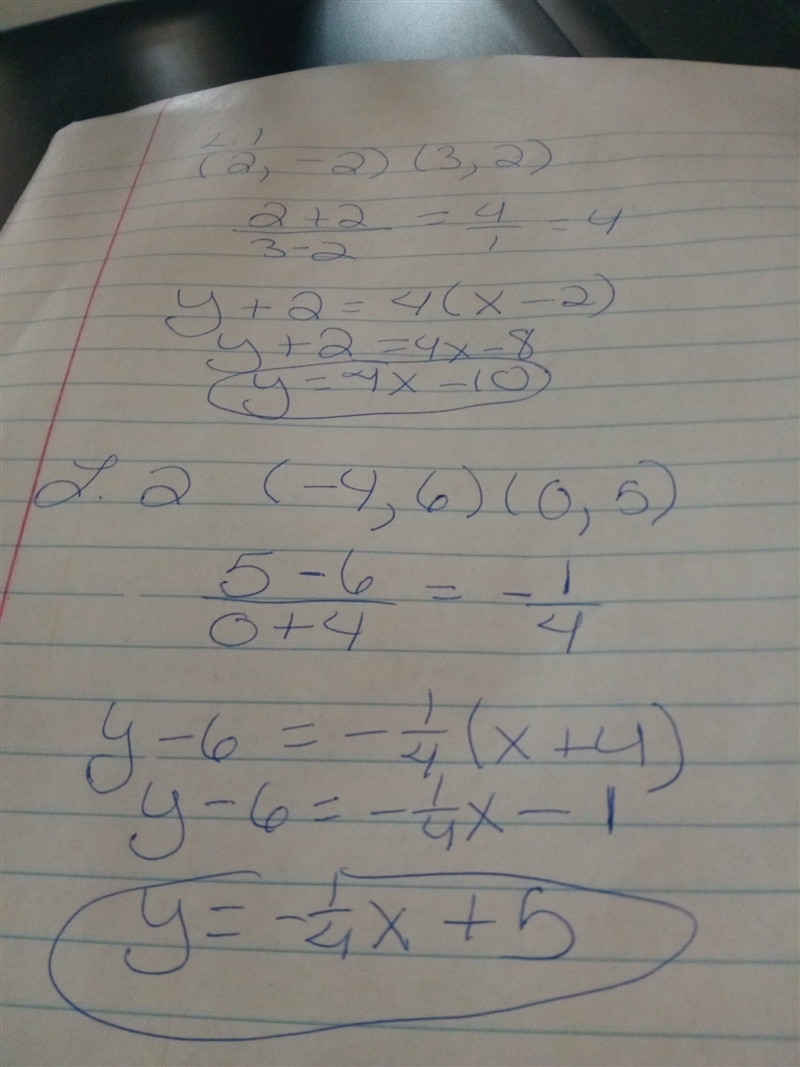 L. 1
(2, -2) (3, 2)
2 + 2 / 3 - 2 = 4/1 = 4
y + 2 = 4(x - 2)
y + 2 = 4x - 8
y = 4x - 10
L. 2 (-4, 6) (0, 5)
5 - 6 / 0 + 4 = - 1/4
y - 6 = - 1/4 (x + 4)
y - 6 = - 1/4 x - 1
y = - 1/4 x + 5